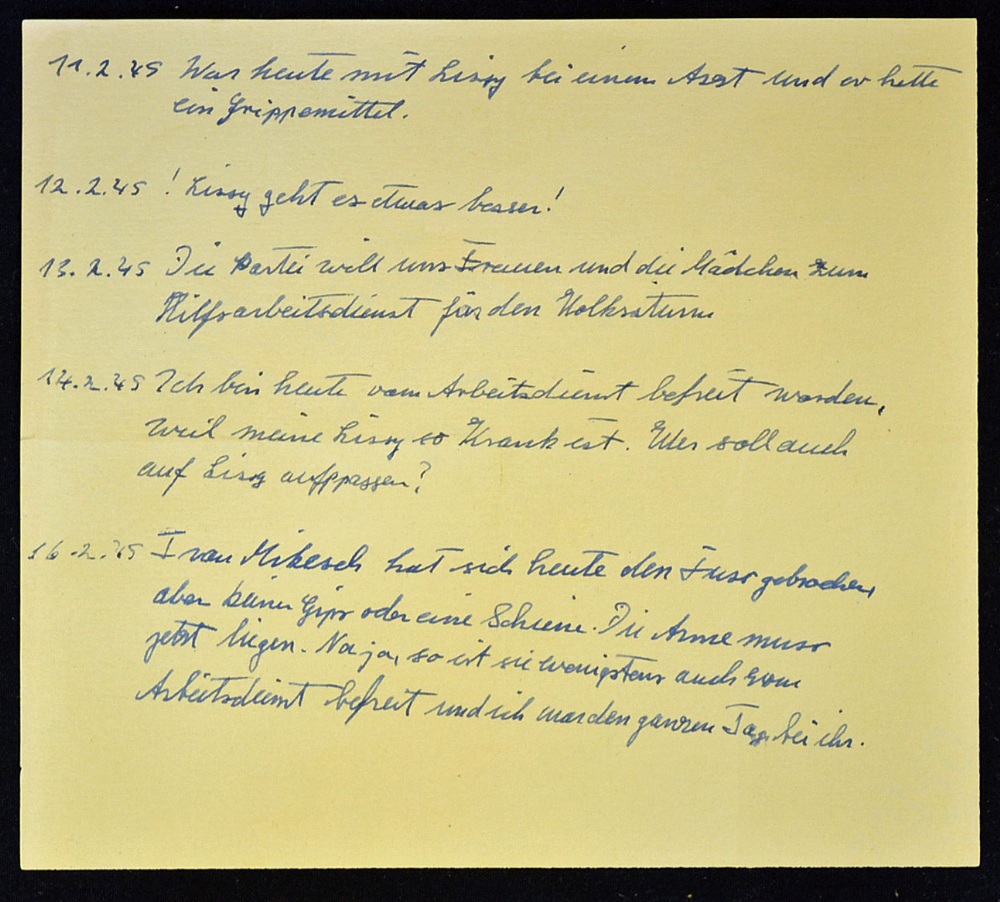 11.2.45 War heute mit Lissy bei einem Arzt und er hette
ein Grippemittel.
12.2.45 ! Lissy geht es etwas besser!
13.2.45 Die Partei will uns Frauen und die Mädchen zum
Hilfsarbeitsdienst für den Volkssturm
14.2.45 Ich bin heute vom Arbeitsdienst befreit worden,
weil meine Lissy so krank ist. Wer soll auch
auf Lissy aufpassen?
16.2.45 Frau Mikesch hat sich heute den Fuss gebrochen,
aber keinen Gips oder eine Schiene. Die Arme muss
jetzt liegen. Na ja, so ist sie wenigstens auch vom
Arbeitsdienst befreit und ich war den ganzen Tag bei ihr.